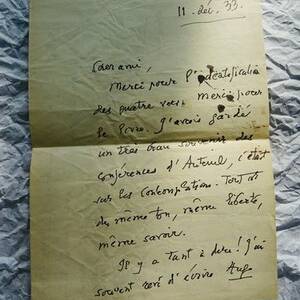 11 déc. 33.
Cher ami,
Merci pour l'
des quatre vers. merci pour
le livre. J'avais gardé
un très beau souvenir des
conférences d'Auteuil, c'était
sur les Contemplations. Tout est
du même ton, même liberté,
même savoir.
Il y a tant à dire! J'ai
souvent rêvé d'écrire Hugo